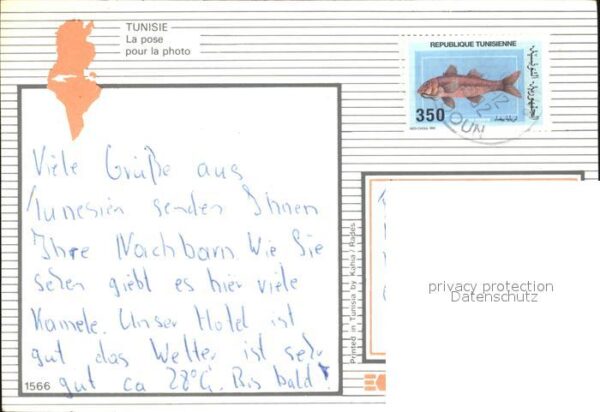 TUNISIE
La pose
pour la photo
REPUBLIQUE TUNISIENNE
350
Viele Grüße aus
Tunesien senden Ihnen
Ihre Nachbarn Wie Sie
sehen giebt es hier viele
Kamele. Unser Hotel ist
gut das Wetter ist sehr
gut ca 28°C. Bis bald!
1566
Printed in Tunisia by Kahia / Radès
privacy protection
Datenschutz